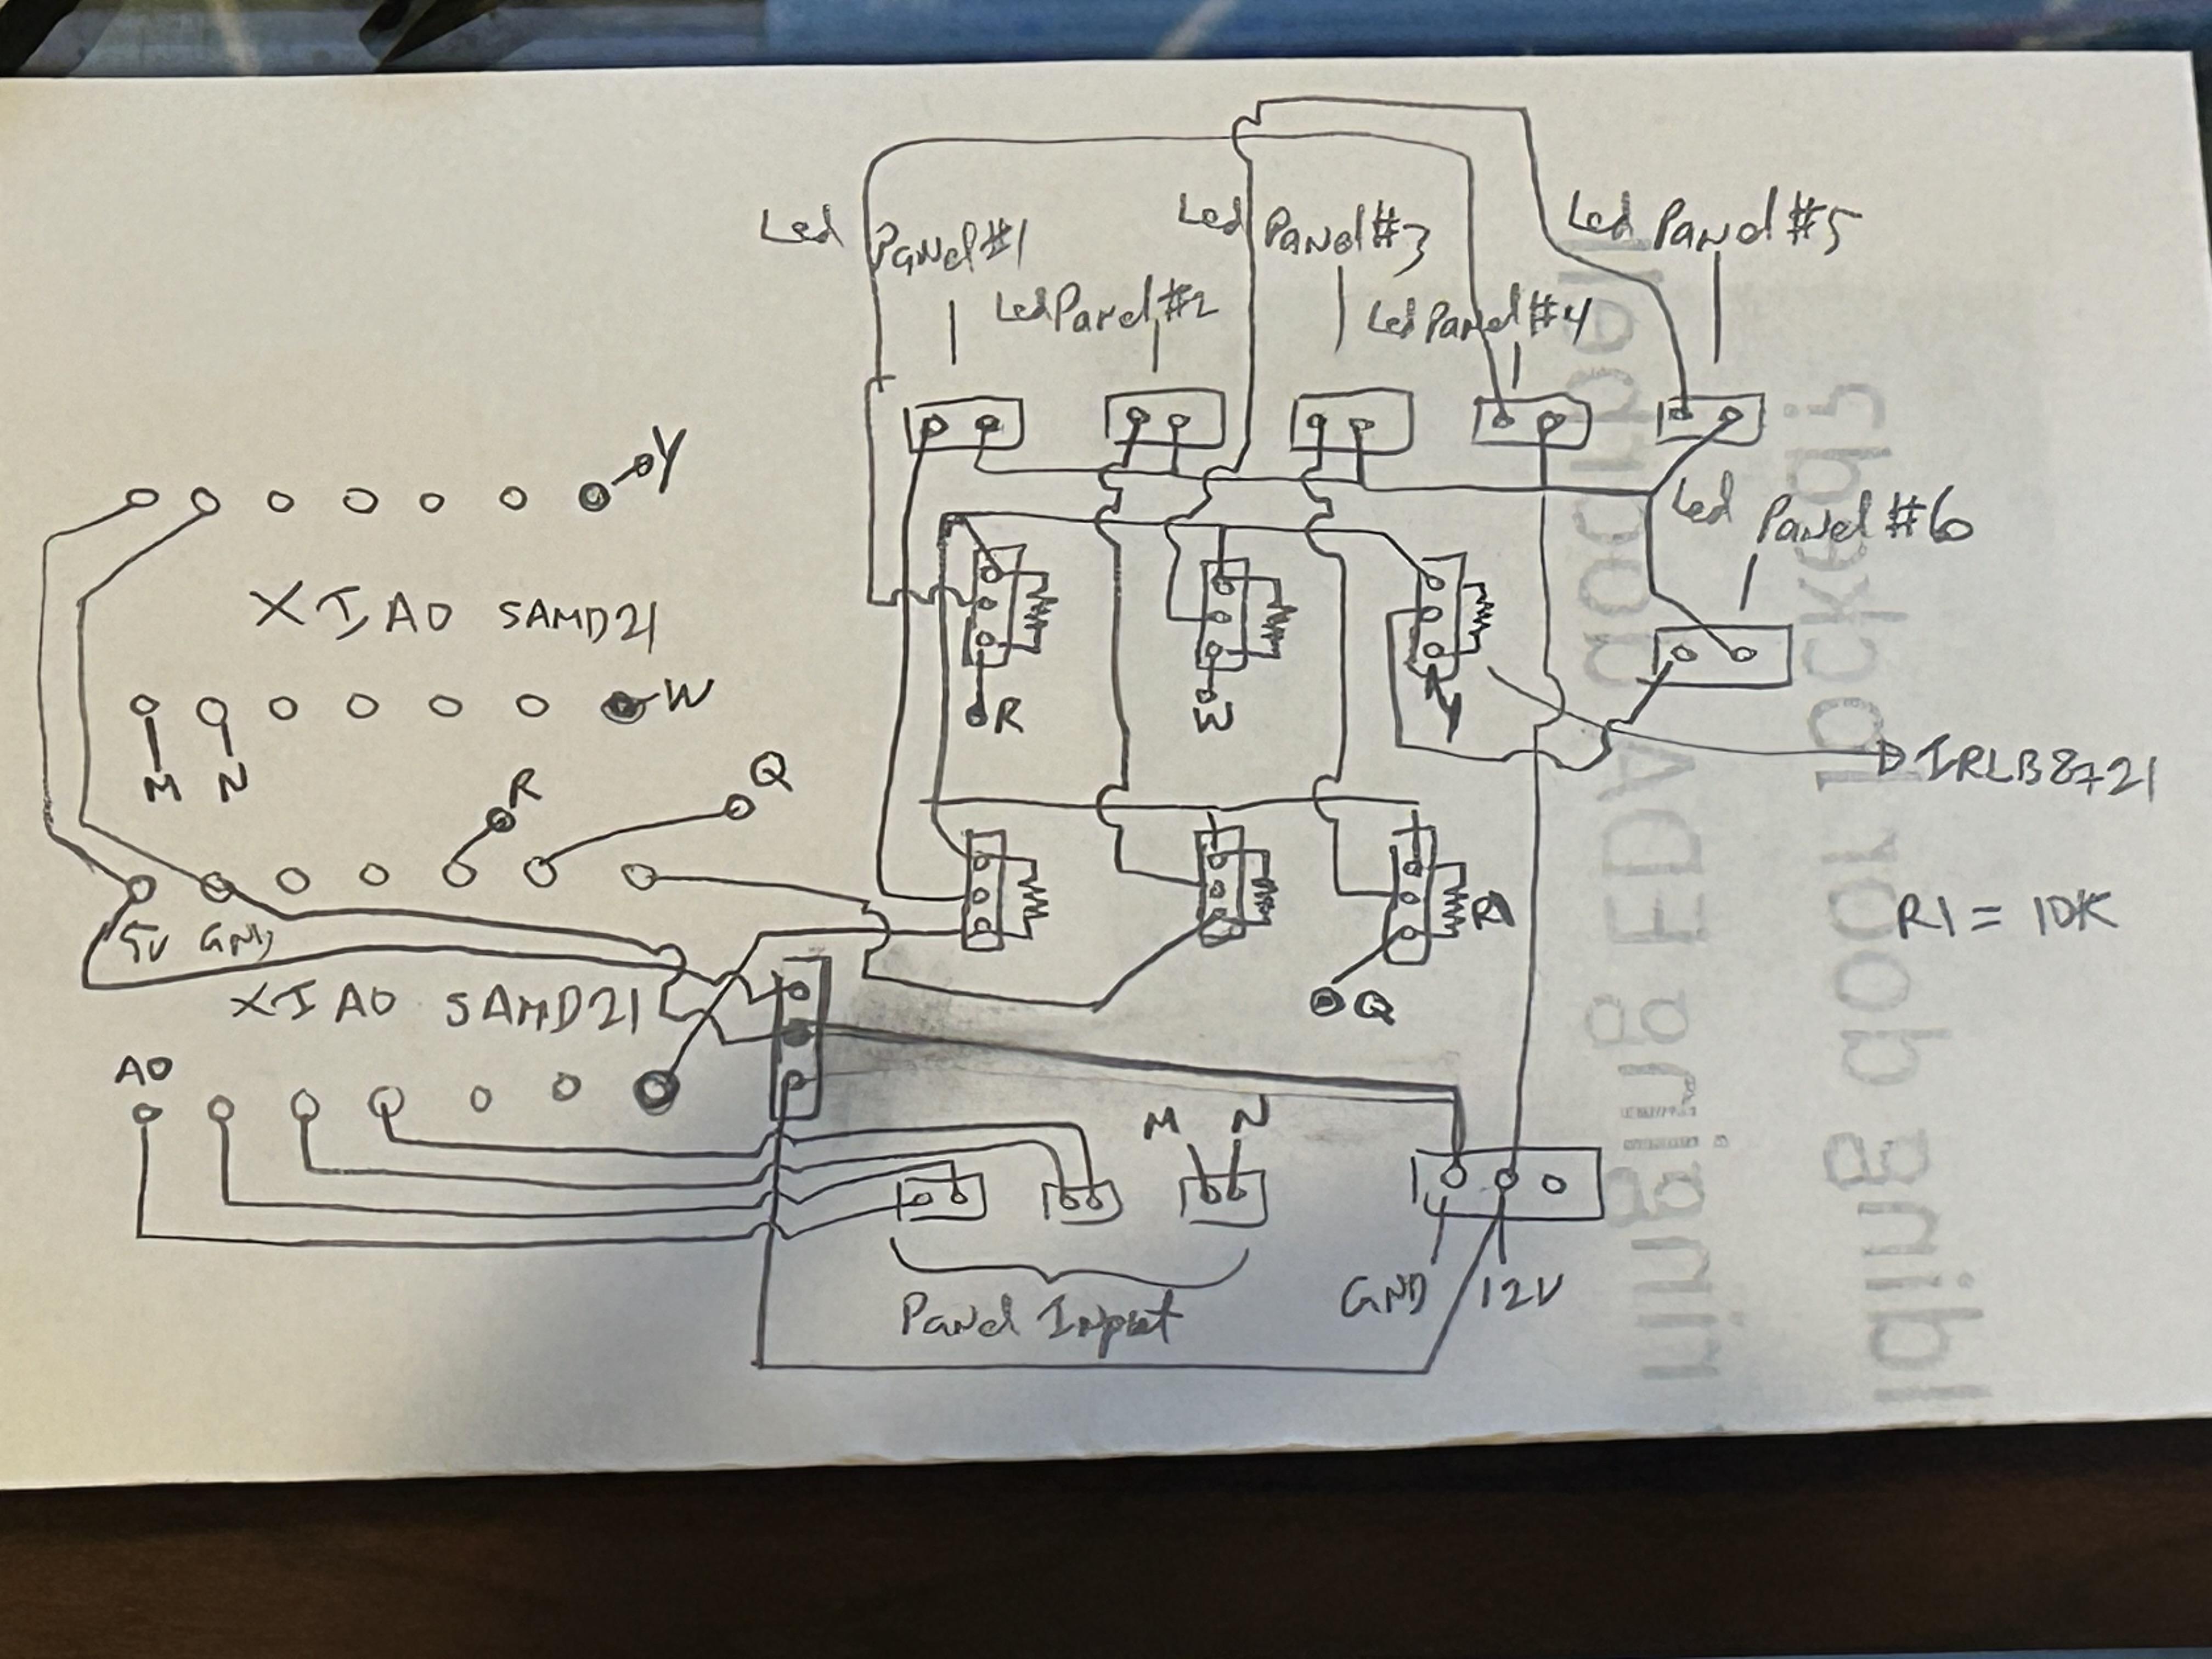 Led Panel #1
Led Panel #2
Led Panel #3
Led Panel #4
Led Panel #5
Led Panel #6
Y
XIAO SAMD21
W
M N
R
Q
5V GND
XIAO SAMD21
A0
R
W
Y
IRLB8721
R1
R1 = 10K
Q
M N
Panel Input
GND 12V